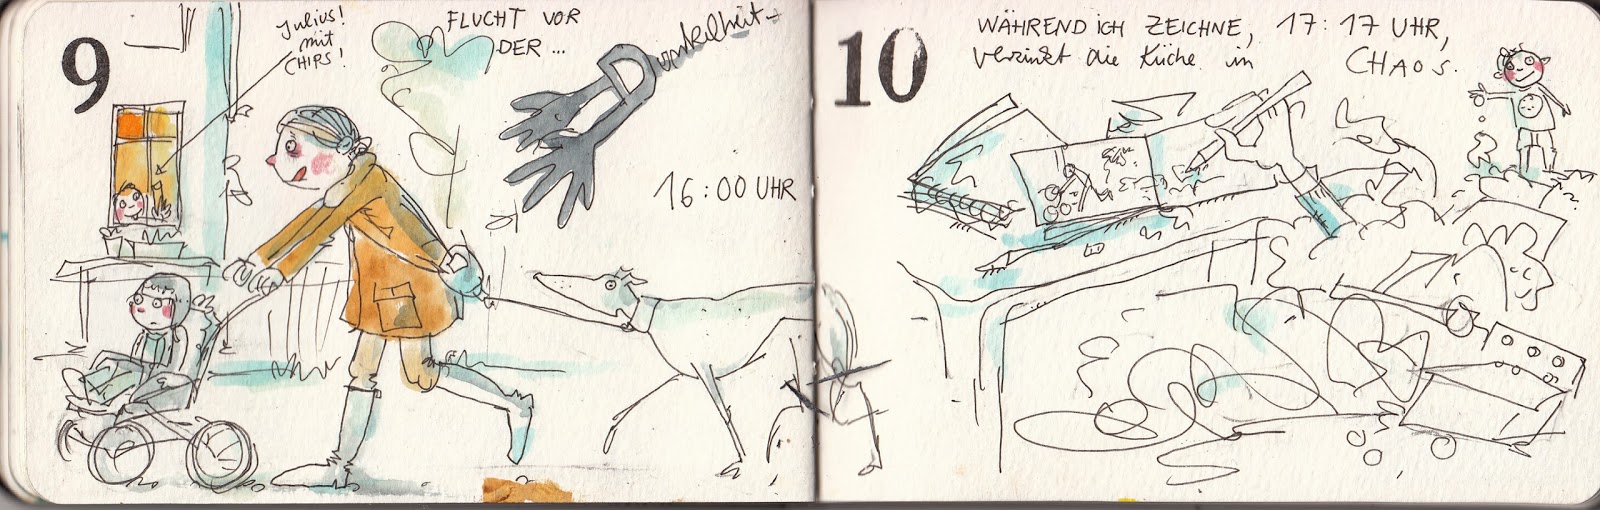 9
Julius!
mit
CHIPS!
FLUCHT VOR
DER ...
Dunkelheit
16:00 UHR
10
WÄHREND ICH ZEICHNE, 17:17 UHR,
versinkt die Küche in
CHAOS.